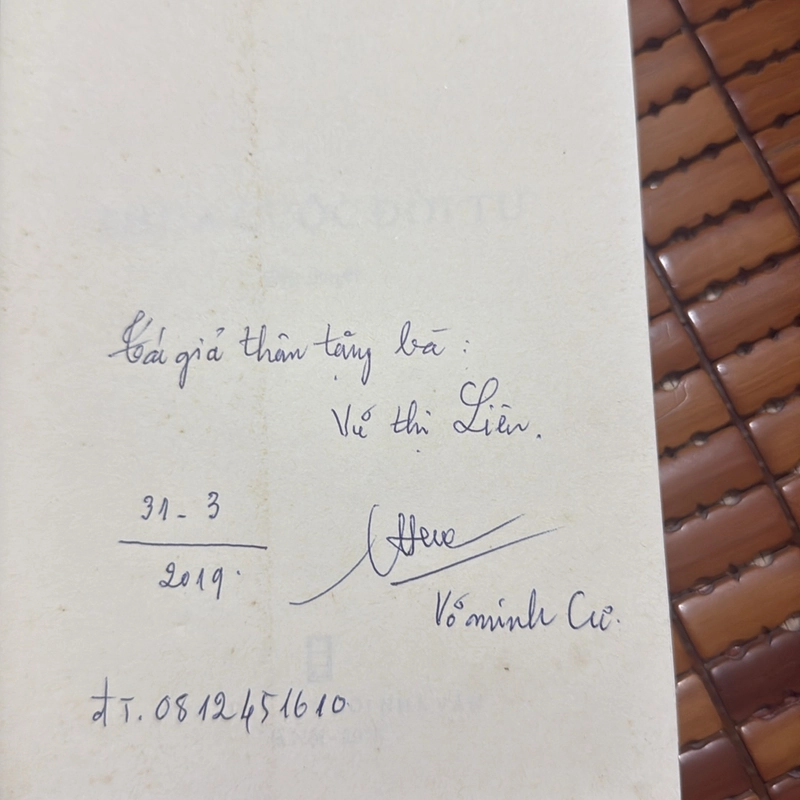 Tác giả thân tặng bà:
Vũ thị Liên.
31-3
2019.
Võ minh Cự.
đT. 0812451610